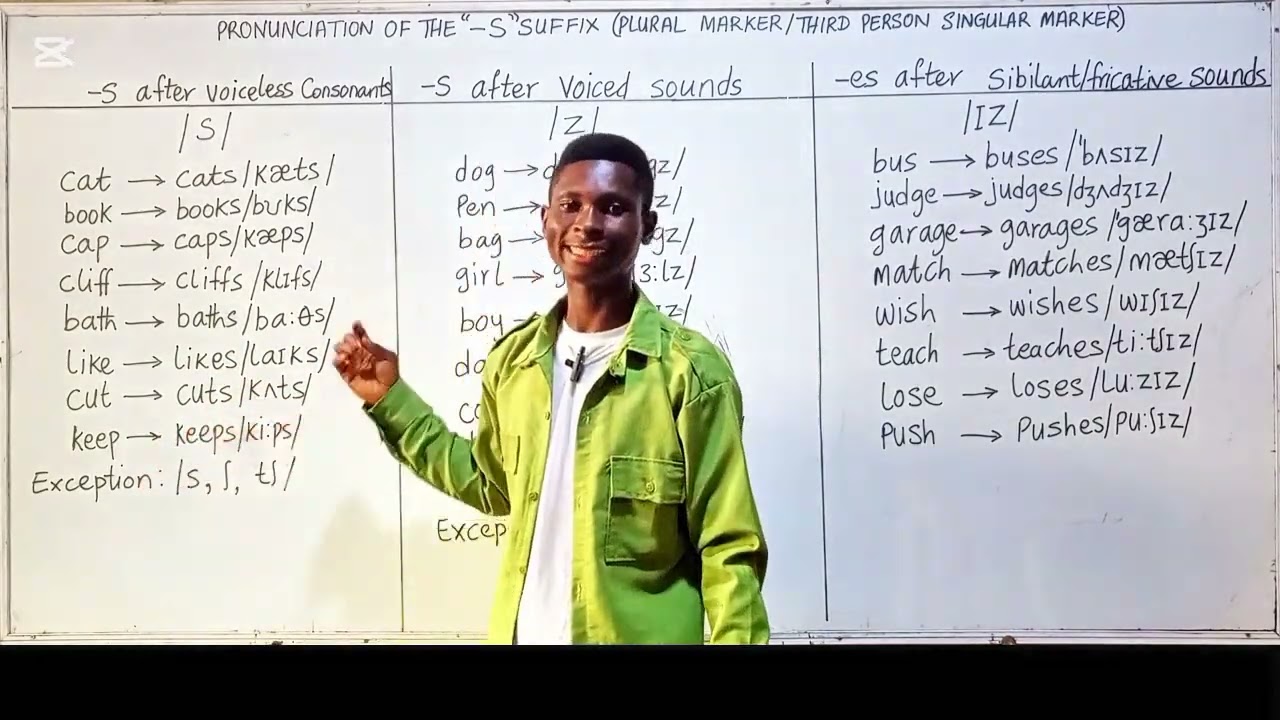 PRONUNCIATION OF THE "-S" SUFFIX (PLURAL MARKER/THIRD PERSON SINGULAR MARKER)
-S after voiceless Consonants
/S/
cat → cats/kæts/
book → books/bʊks/
cap → caps/kæps/
cliff → cliffs/klɪfs/
bath → baths/ba:θs/
like → likes/laɪks/
cut → cuts/kʌts/
keep → keeps/ki:ps/
Exception: /s, ʃ, tʃ/
-S after Voiced sounds
/Z/
dog →
Pen →
bag →
girl →
boy
-es after Sibilant/fricative sounds
/IZ/
bus → buses/ˈbʌsIZ/
judge → judges/dʒʌdʒIZ/
garage → garages/ˈgæra:ʒIZ/
match → matches/mætʃIZ/
wish → wishes/wIʃIZ/
teach → teaches/ti:tʃIZ/
lose → loses/Lu:zIZ/
Push → Pushes/pu:ʃIZ/